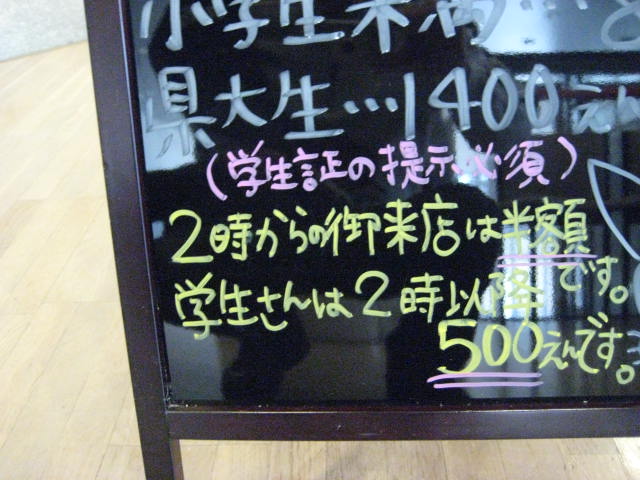 小学生未満…
県大生…1400えん
(学生証の提示必須)
2時からの御来店は半額です。
学生さんは2時以降
500えんです。